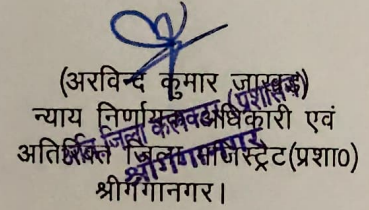 (अरविन्द कुमार जाखड़)
न्याय निर्णायक अधिकारी एवं
अतिरिक्त जिला मजिस्ट्रेट(प्रशा0)
श्रीगंगानगर।
जिला कलक्टर (प्रशासन)
श्रीगंगानगर